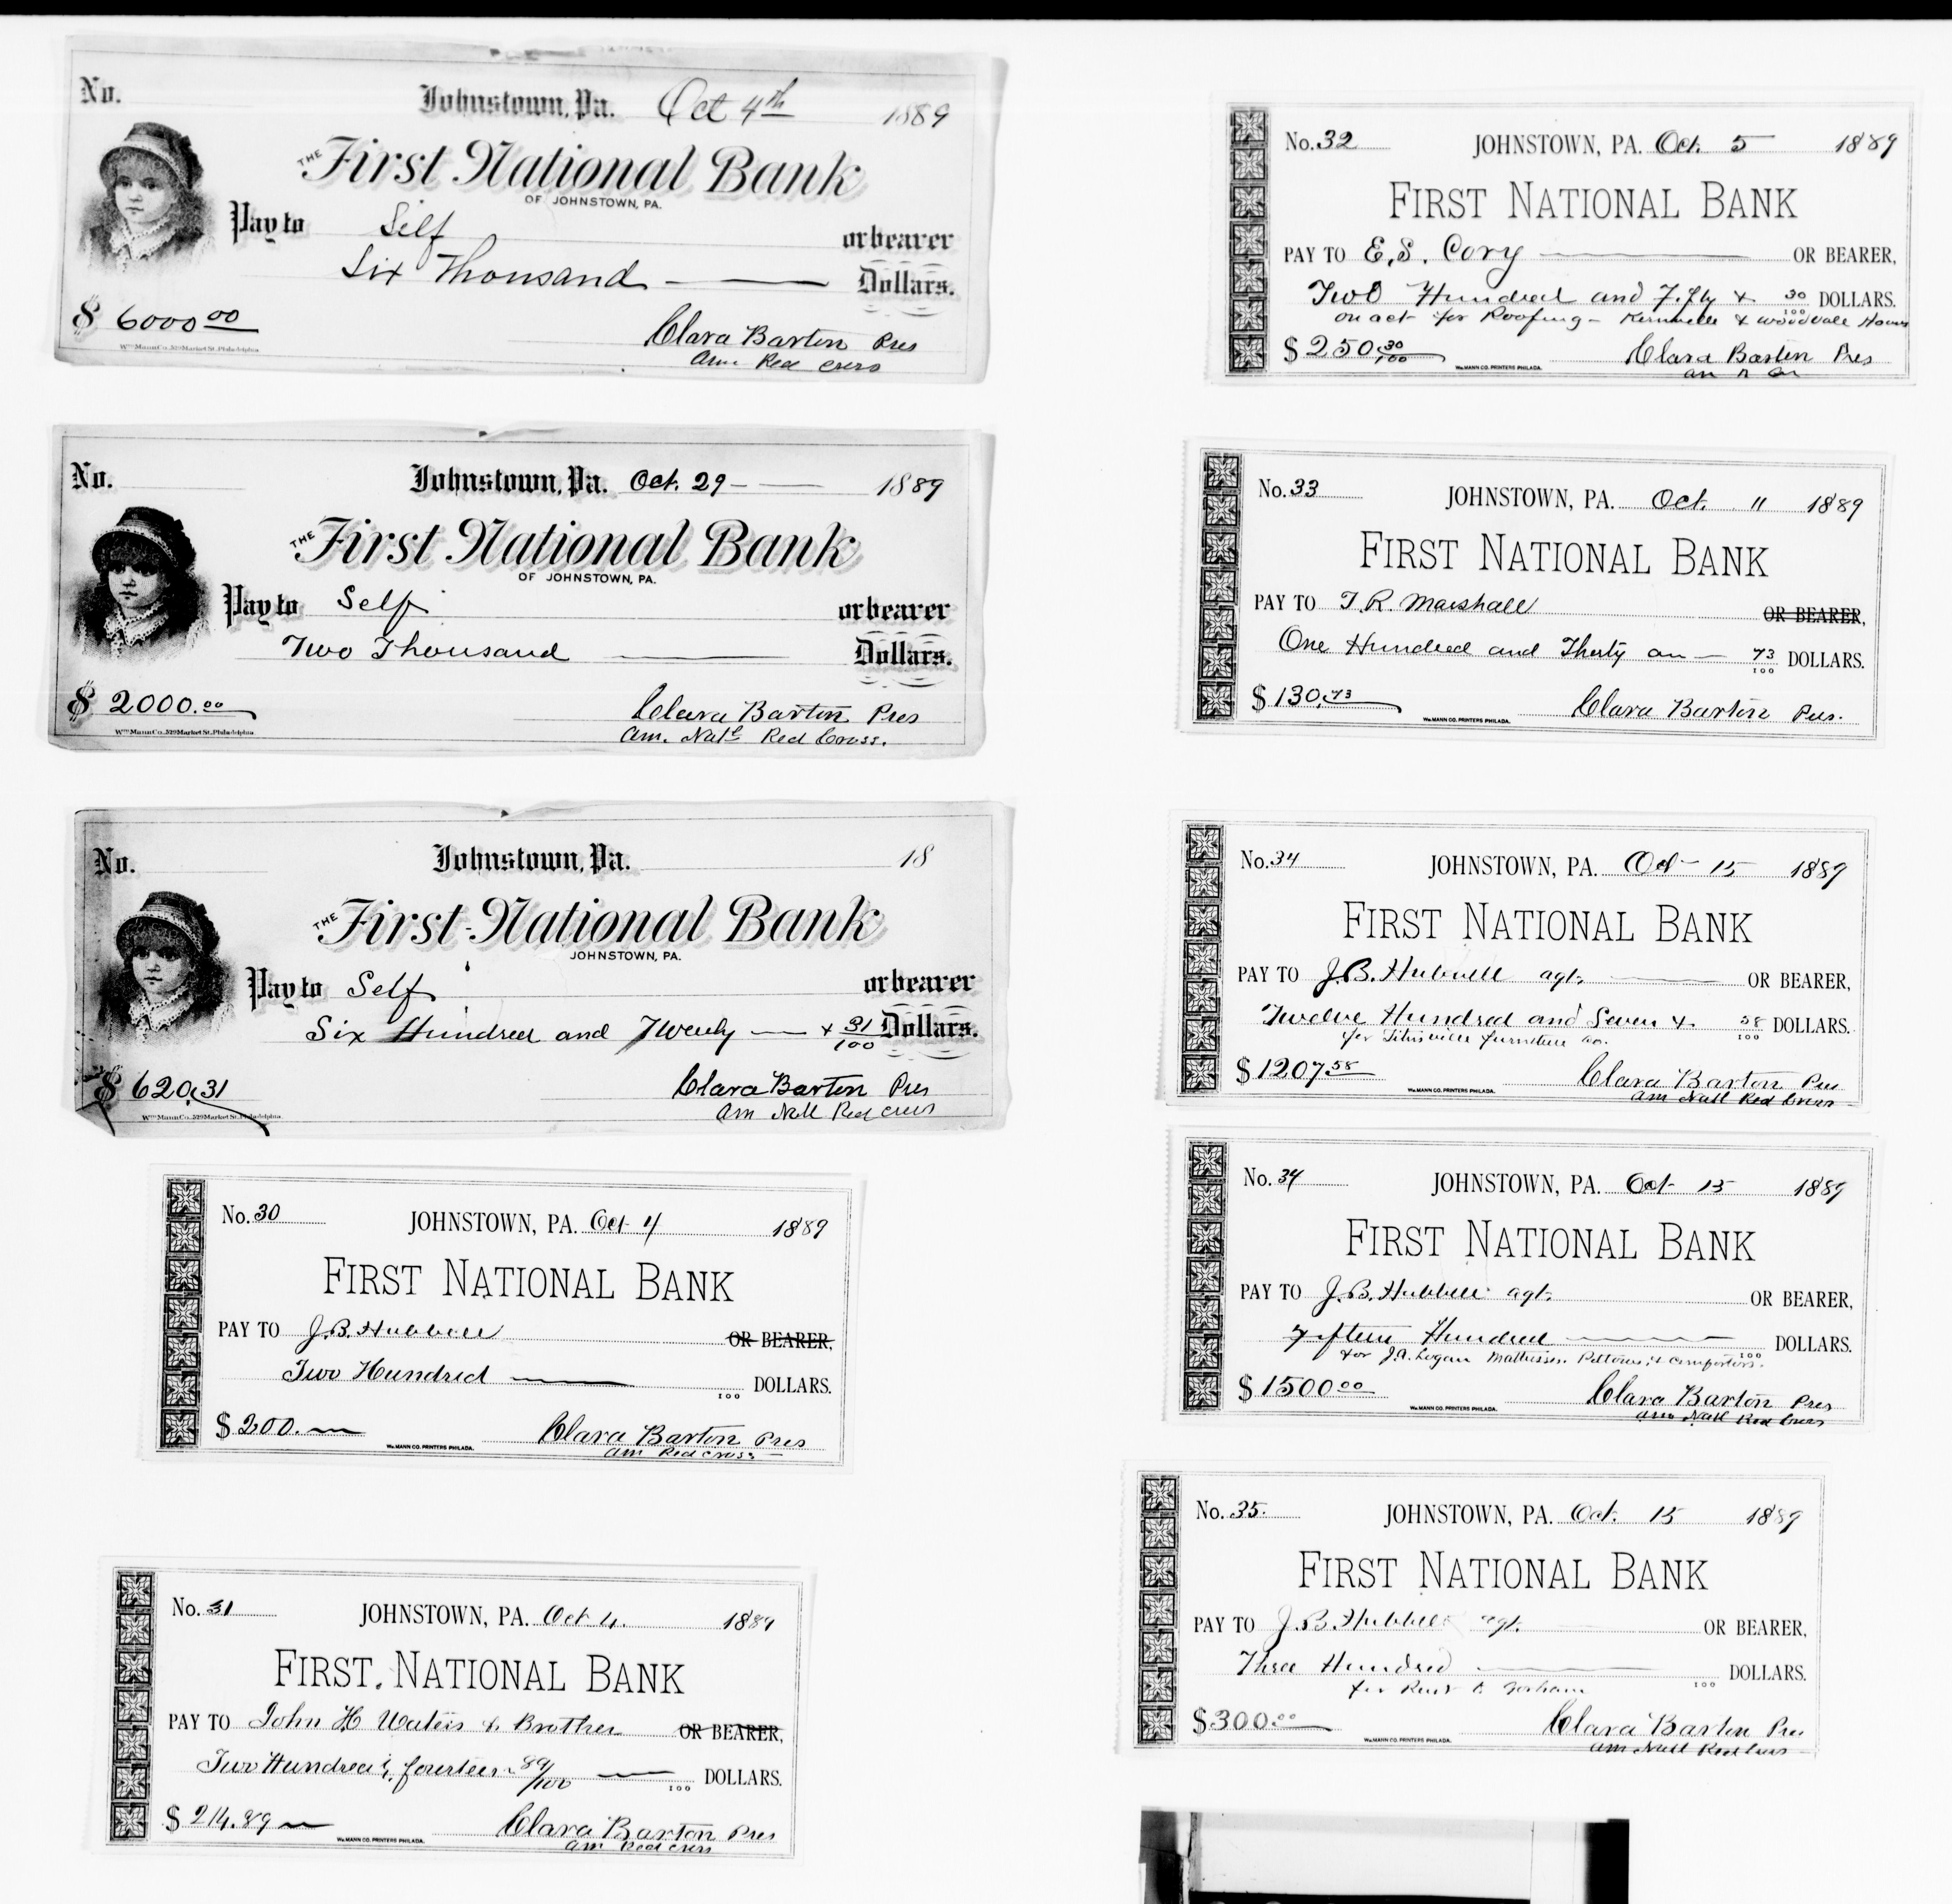 No.
Johnstown, Pa. Oct 4th 1889
THE First National Bank
OF JOHNSTOWN, PA.
Pay to Self or bearer
Six Thousand Dollars.
$ 6000 00
Clara Barton Pres
Am. Red Cross
Wm Mann Co. 529 Market St. Philadelphia
No.
Johnstown, Pa. Oct. 29 - 1889
THE First National Bank
OF JOHNSTOWN, PA.
Pay to Self or bearer
Two Thousand Dollars.
$ 2000.00
Clara Barton Pres
Am. Natl Red Cross.
Wm Mann Co. 529 Market St. Philadelphia
No.
Johnstown, Pa. 18
THE First National Bank
JOHNSTOWN, PA.
Pay to Self or bearer
Six Hundred and Twenty — + 31/100 Dollars.
$ 620.31
Clara Barton Pres
Am Natl Red Cross
Wm Mann Co. 529 Market St. Philadelphia
No. 30
JOHNSTOWN, PA. Oct 4 1889
FIRST NATIONAL BANK
PAY TO J.B. Hubbell OR BEARER,
Two Hundred 100 DOLLARS.
$ 200.
Clara Barton Pres
Am Red Cross
WM. MANN CO. PRINTERS PHILADA.
No. 31
JOHNSTOWN, PA. Oct 4. 1889
FIRST NATIONAL BANK
PAY TO John H Waters & Brother OR BEARER,
Two Hundred & fourteen 89/100 100 DOLLARS.
$ 214.89
Clara Barton Pres
Am Red Cross
WM. MANN CO. PRINTERS PHILADA.
No. 32
JOHNSTOWN, PA. Oct. 5 1889
FIRST NATIONAL BANK
PAY TO E.S. Cory OR BEARER,
Two Hundred and Fifty & 30/100 DOLLARS.
on act for Roofing - Kernville & Woodvale Houses
$ 250 30/100
Clara Barton Pres
WM. MANN CO. PRINTERS PHILADA.
No. 33
JOHNSTOWN, PA. Oct. 11 1889
FIRST NATIONAL BANK
PAY TO T.R. Marshall OR BEARER,
One Hundred and Thirty an — 73/100 DOLLARS.
$ 130.73
Clara Barton Pres.
WM. MANN CO. PRINTERS PHILADA.
No. 34
JOHNSTOWN, PA. Oct - 15 1889
FIRST NATIONAL BANK
PAY TO J.B. Hubbell agt. OR BEARER,
Twelve Hundred and Seven & 58/100 DOLLARS.
for Titusville furniture Co.
$ 1207 58
Clara Barton Pres
Am Natl Red Cross
WM. MANN CO. PRINTERS PHILADA.
No. 34
JOHNSTOWN, PA. Oct 15 1889
FIRST NATIONAL BANK
PAY TO J.B. Hubbell agt. OR BEARER,
Fifteen Hundred 100 DOLLARS.
for J.A. Logan Mattresses. Pillows, & comforters.
$ 1500 00
Clara Barton Pres
Am Natl Red Cross
WM. MANN CO. PRINTERS PHILADA.
No. 35.
JOHNSTOWN, PA. Oct. 15 1889
FIRST NATIONAL BANK
PAY TO J.B. Hubbell agt. OR BEARER,
Three Hundred 100 DOLLARS.
for
$ 300.00
Clara Barton Pres
Am Natl Red Cross
WM. MANN CO. PRINTERS PHILADA.